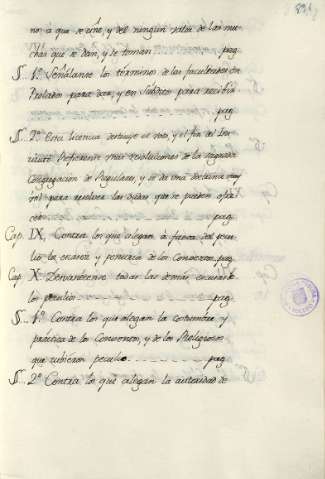 no à que se ciñe, y del ningun valor de las mu-
chas que se dan, y se toman pag.
§. 1.º Señalanse los términos de las facultades en
Prelados para dar, y en Subditos para recibir
pag.
§. 2.º Esta licencia destruye el voto, y el fin del Ins-
tituto. Refierense varias resoluciones de la sagrada
Congregacion de Regulares, y se da una doctrina muy
util para resolver las dudas que se pueden ofre-
cer pag.
Cap. IX. Contra los que alegan à favor del pecu-
lio la escasez y penuria de los Conventos, pag.
Cap. X. Desvanecense todas las demas escusas de
los peculios pag.
§. 1.º Contra los que alegan la costumbre y
práctica de los Conventos, y de los Religiosos
que tubieron peculio pag.
§. 2.º Contra los que alegan la autoridad de